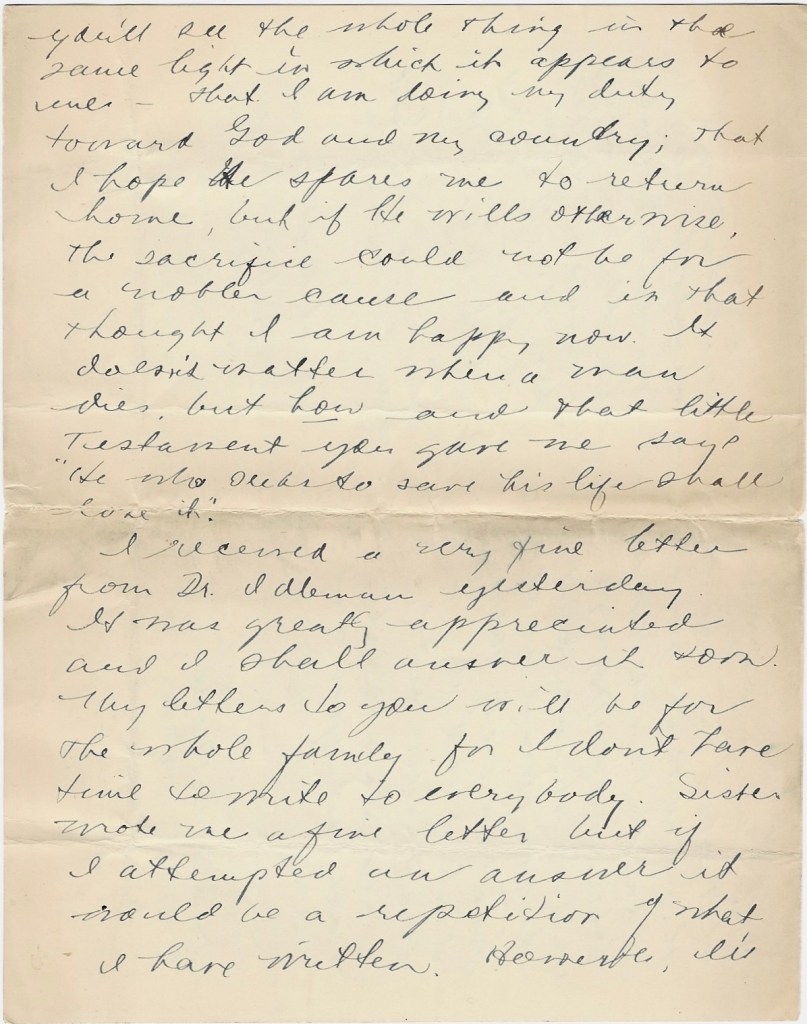 you'll see the whole thing in the
same light in which it appears to
me — that I am doing my duty
toward God and my country; that
I hope He spares me to return
home, but if He wills otherwise,
the sacrifice could not be for
a nobler cause and in that
thought I am happy now. It
doesn't matter when a man
dies, but how and that little
Testament you gave me says
"He who seeks to save his life shall
lose it".
I received a very fine letter
from Dr. Idleman yesterday.
It was greatly appreciated
and I shall answer it soon.
My letters to you will be for
the whole family for I don't have
time to write to everybody. Sister
wrote me a fine letter but if
I attempted an answer it
would be a repetition of what
I have written. However, I'll